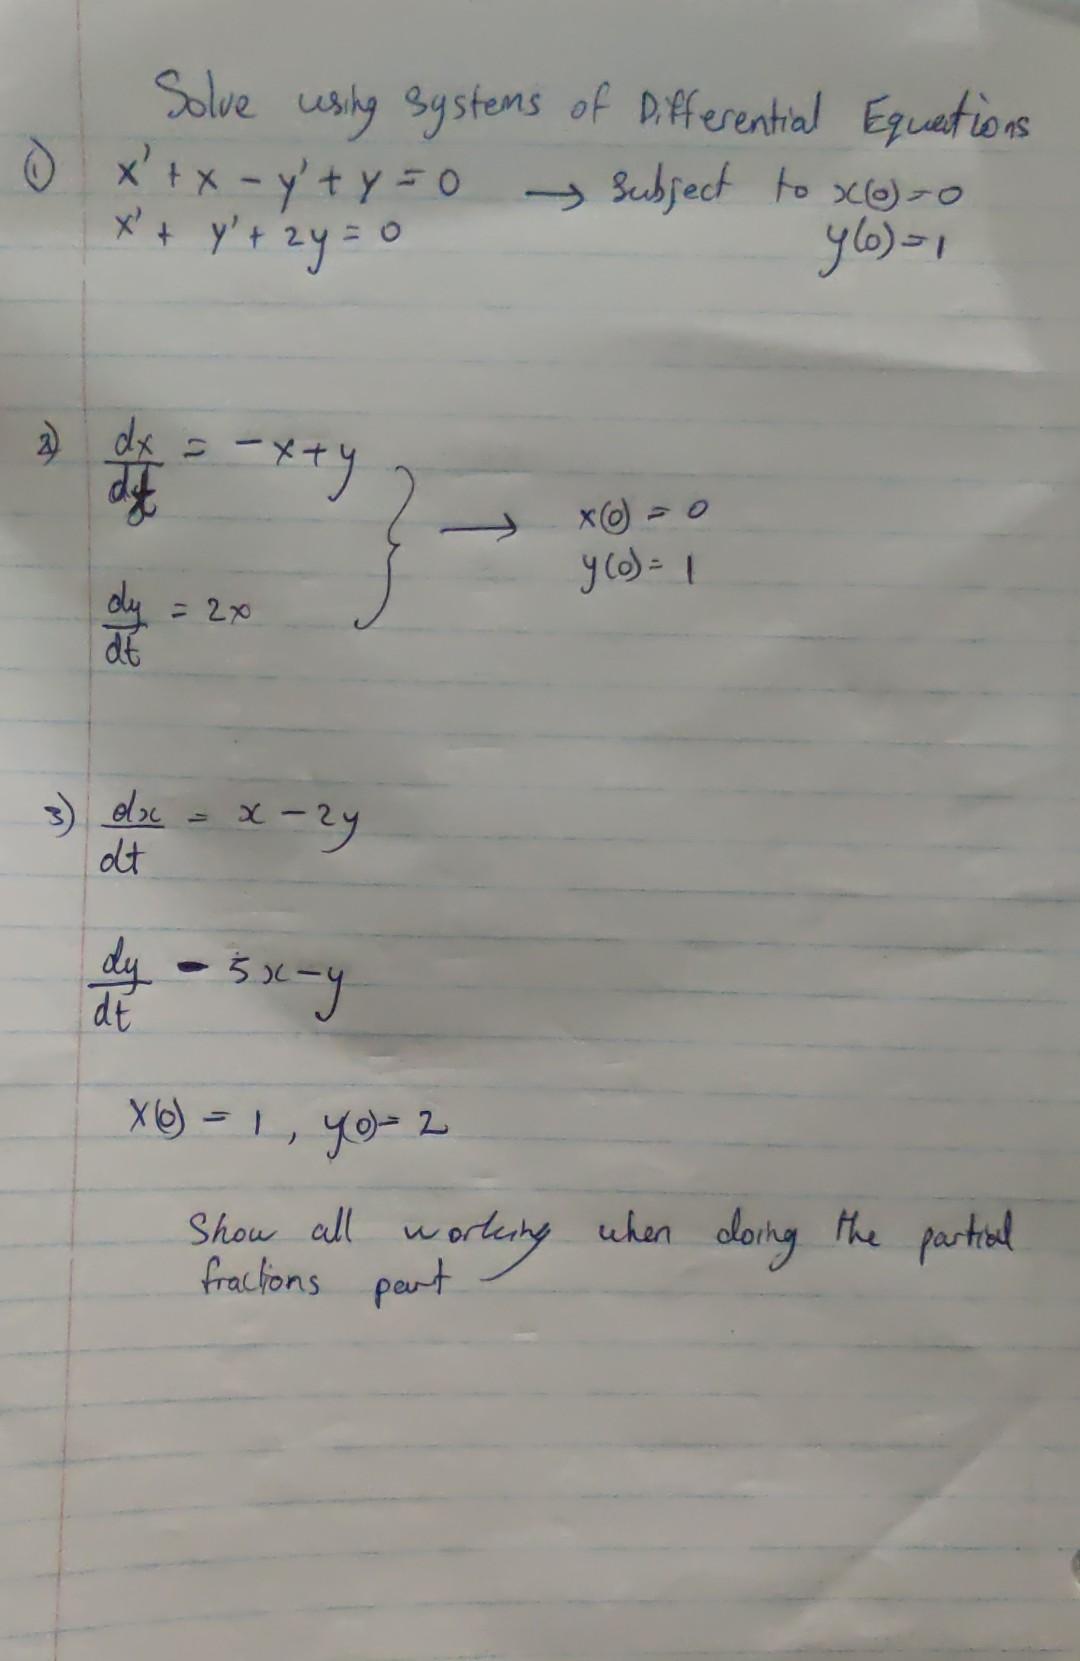 Solve using systems of Differential Equations
① x' + x - y' + y = 0 → subject to x(0)=0
x' + y' + 2y = 0 y(0)=1
2) dx/dt = -x+y
→ x(0) = 0
y(0) = 1
dy/dt = 2x
3) dx/dt = x - 2y
dy/dt - 5x-y
x(0) = 1, y(0)= 2
Show all working when doing the partial
fractions part